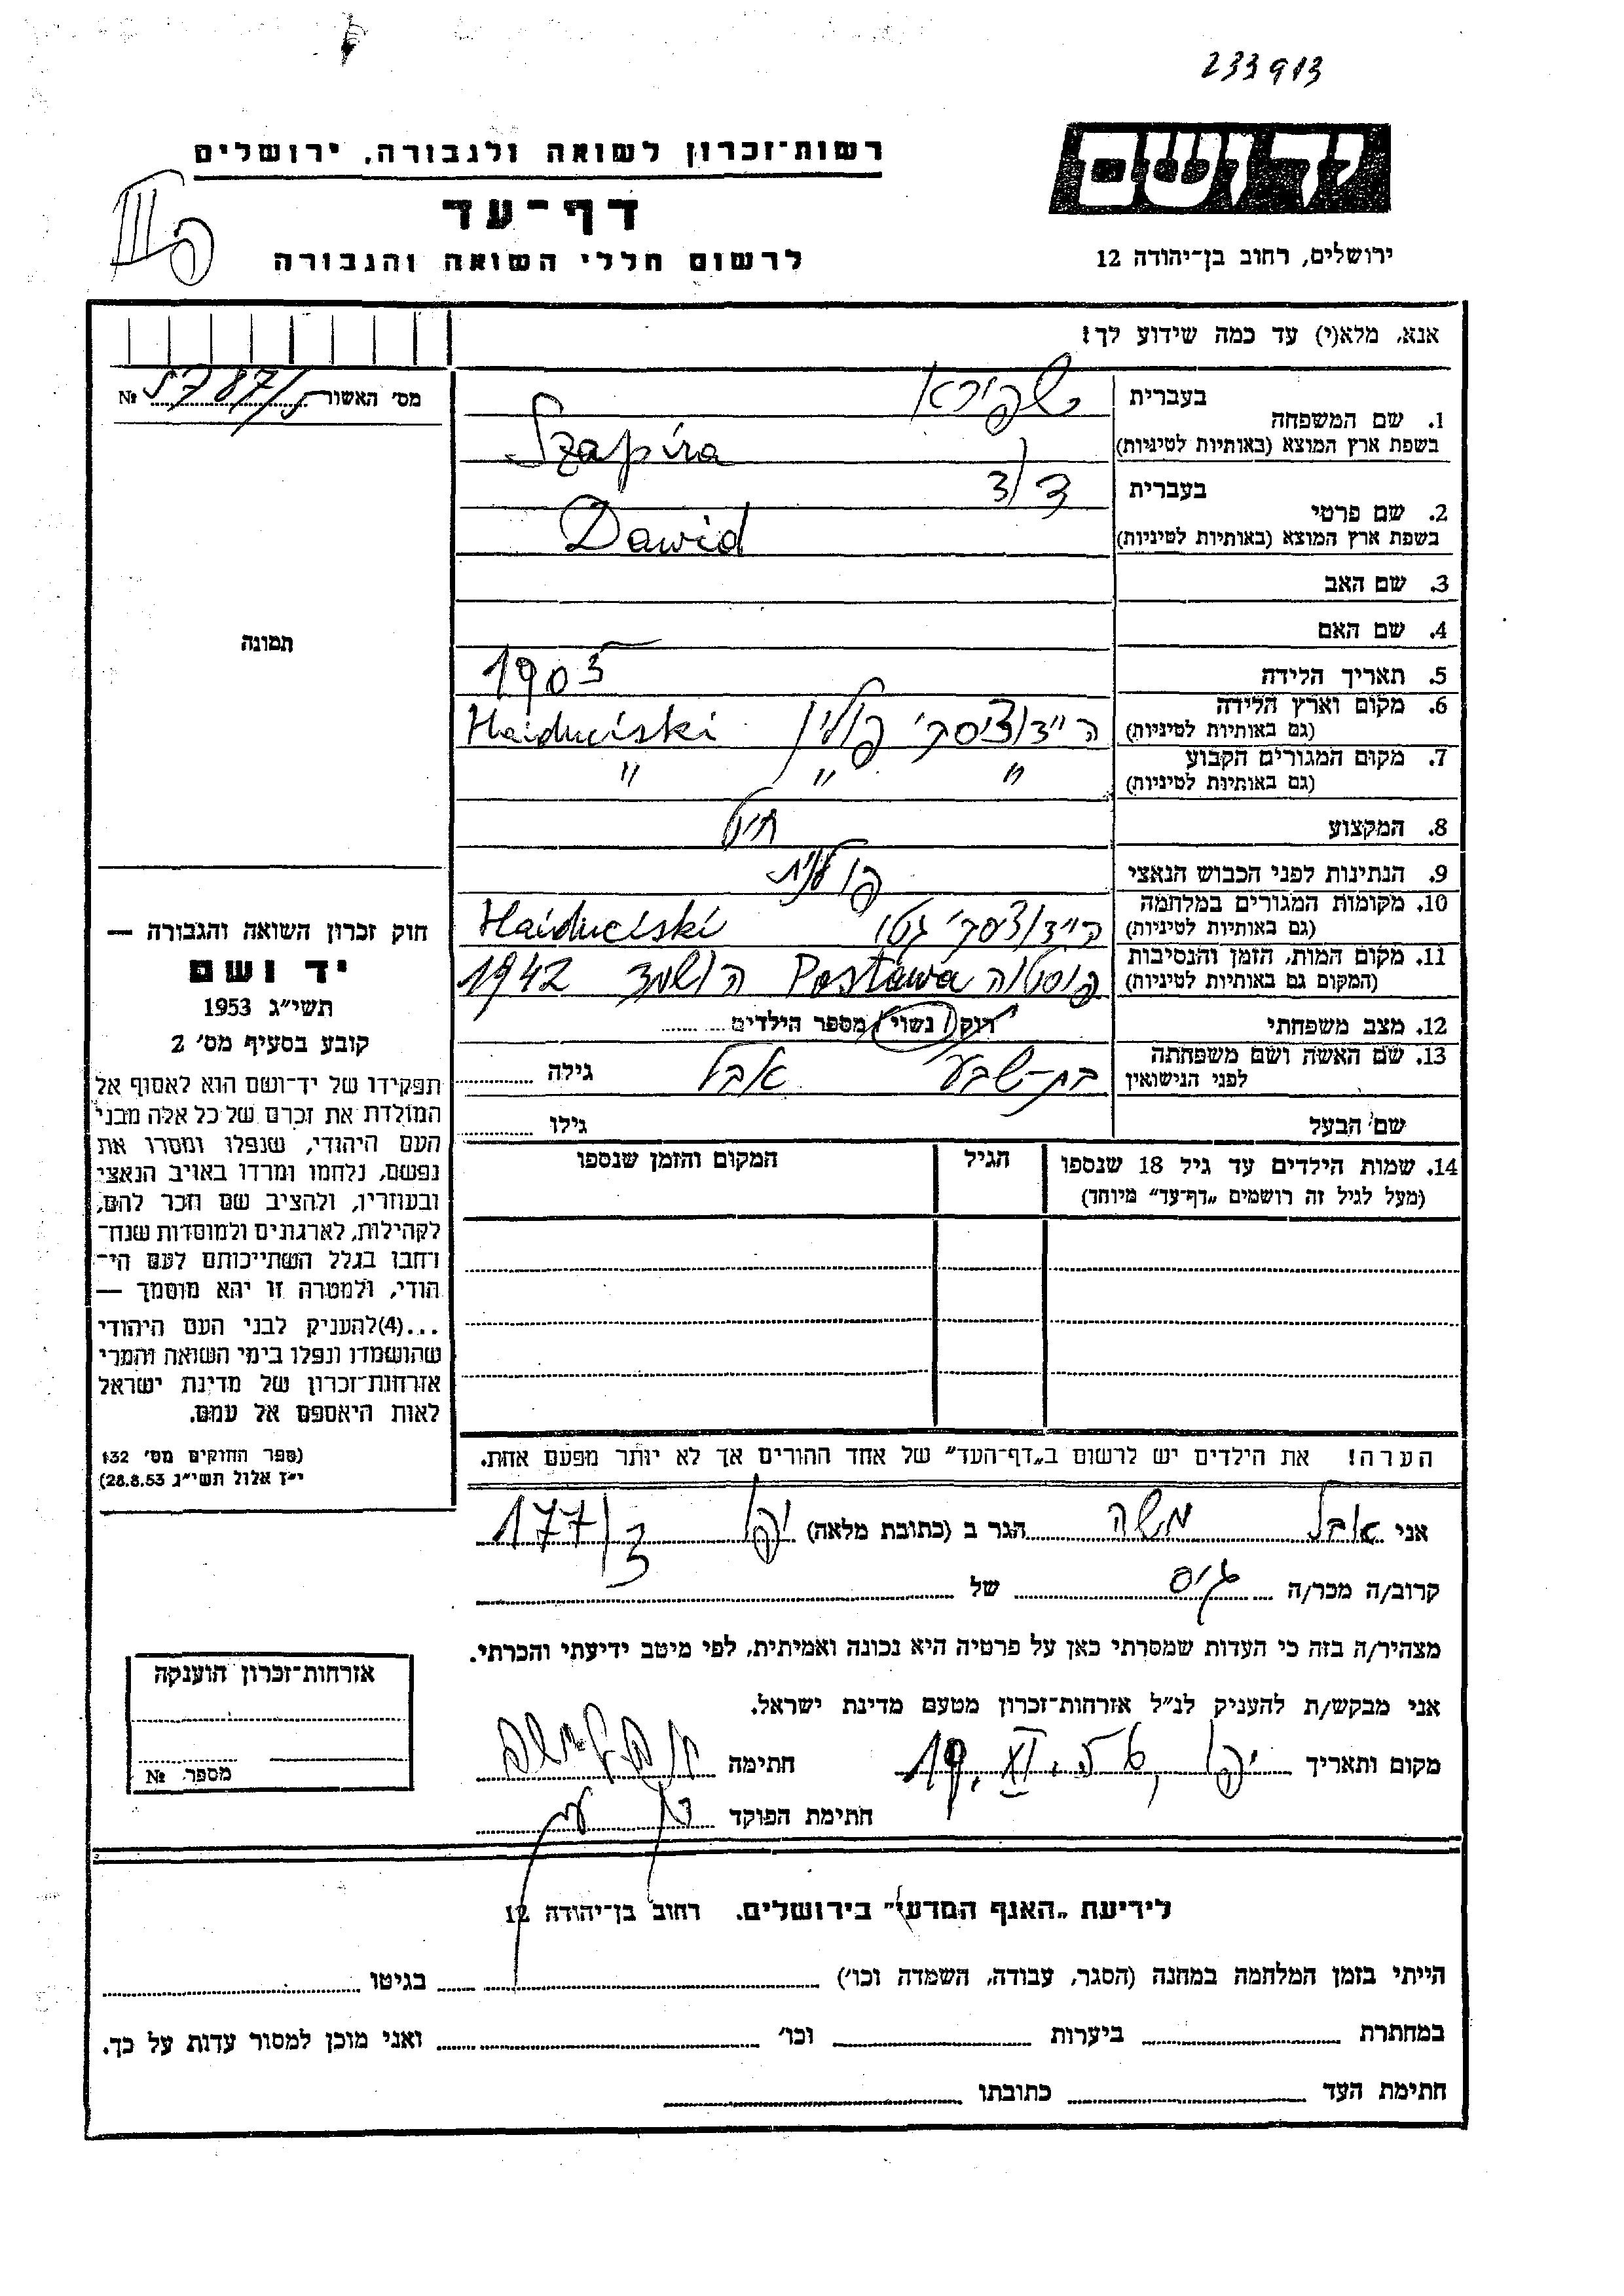 233913
יד ושם
רשות־זכרון לשואה ולגבורה, ירושלים
דף־עד
לרשום חללי השואה והגבורה
ירושלים, רחוב בן־יהודה 12
אנא, מלא(י) עד כמה שידוע לך!
מס' האשור 5787/5 №
תמונה
1. שם המשפחה
בעברית שפירא
בשפת ארץ המוצא (באותיות לטיניות) Szapira
2. שם פרטי
בעברית דוד
בשפת ארץ המוצא (באותיות לטיניות) Dawid
3. שם האב
4. שם האם
5. תאריך הלידה 1905
6. מקום וארץ הלידה
(גם באותיות לטיניות) היידוציסקי פולין Haiduciski
7. מקום המגורים הקבוע
(גם באותיות לטיניות) " " "
8. המקצוע חיט
9. הנתינות לפני הכבוש הנאצי פולנית
10. מקומות המגורים במלחמה
(גם באותיות לטיניות) היידוציסקי גטו Haiduciski
11. מקום המות, הזמן והנסיבות
(המקום גם באותיות לטיניות) פוסטוה Postawa הושמד 1942
12. מצב משפחתי רווק/נשוי/ מספר הילדים
13. שם האשה ושם משפחתה
לפני הנישואין בת-שבע אבל גילה
שם הבעל גילו
14. שמות הילדים עד גיל 18 שנספו
(מעל לגיל זה רושמים „דף־עד" מיוחד)
הגיל
המקום והזמן שנספו
הערה! את הילדים יש לרשום ב„דף־העד" של אחד ההורים אך לא יותר מפעם אחת.
חוק זכרון השואה והגבורה —
יד ושם
תשי״ג 1953
קובע בסעיף מס' 2
תפקידו של יד־ושם הוא לאסוף אל
המולדת את זכרם של כל אלה מבני
העם היהודי, שנפלו ומסרו את
נפשם, נלחמו ומרדו באויב הנאצי
ובעוזריו, ולהציב שם וזכר להם,
לקהילות, לארגונים ולמוסדות שנח־
רבו בגלל השתייכותם לעם הי־
הודי, ולמטרה זו יהא מוסמך —
...(4)להעניק לבני העם היהודי
שהושמדו ונפלו בימי השואה והמרי
אזרחות־זכרון של מדינת ישראל
לאות היאספם אל עמם.
(ספר החוקים מס' 132
י״ז אלול תשי״ג 28.8.53)
אני אבל משה הגר ב (כתובת מלאה) יפו 177/3
קרוב/ה מכר/ה גיס של
מצהיר/ה בזה כי העדות שמסרתי כאן על פרטיה היא נכונה ואמיתית, לפי מיטב ידיעתי והכרתי.
אני מבקש/ת להעניק לנ״ל אזרחות־זכרון מטעם מדינת ישראל.
מקום ותאריך יפו, 19.XI.55 חתימה
חתימת הפוקד
אזרחות־זכרון הוענקה
מספר №
לידיעת „האגף המדעי" בירושלים. רחוב בן־יהודה 12
הייתי בזמן המלחמה במחנה (הסגר, עבודה, השמדה וכו') בגיטו
במחתרת ביערות וכו' ואני מוכן למסור עדות על כך.
חתימת העד כתובתו